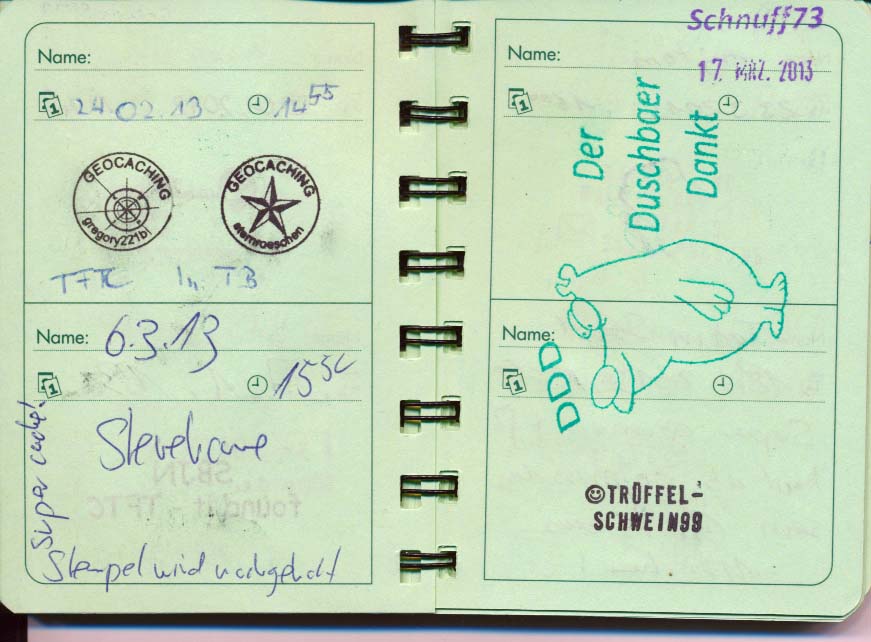 Name:
24.02.13 14 55
GEOCACHING
gregory221bl
GEOCACHING
sternroeschen
TFTC In TB
Name: 6.3.13
Super cache!
Stempel wird nachgeholt
Schnuff73
Name:
17. MRZ. 2013
Der
Duschbaer
Dankt
Name:
DDD
☺TRÜFFEL-
SCHWEIN99
SBJN
found it TFTC